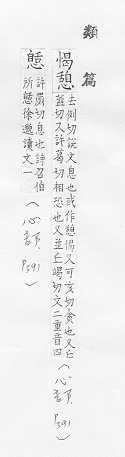 類篇
愒憩
去例切說文息也或作憩愒又可亥切貪也又丘
蓋切又許葛切相恐也又並丘竭切文二重音四(心部 P391)
許罽切息也詩召伯
所憩徐邈讀文一(心部 P391)